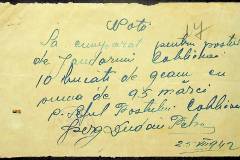 Notă 14
Sa cumparat pentru postul
de Jandarmi Cobilnea
10 bucati de geam cu
suma de 95 mărci
p. Șeful Postului Cobilnea
Serg.
25 VII 942